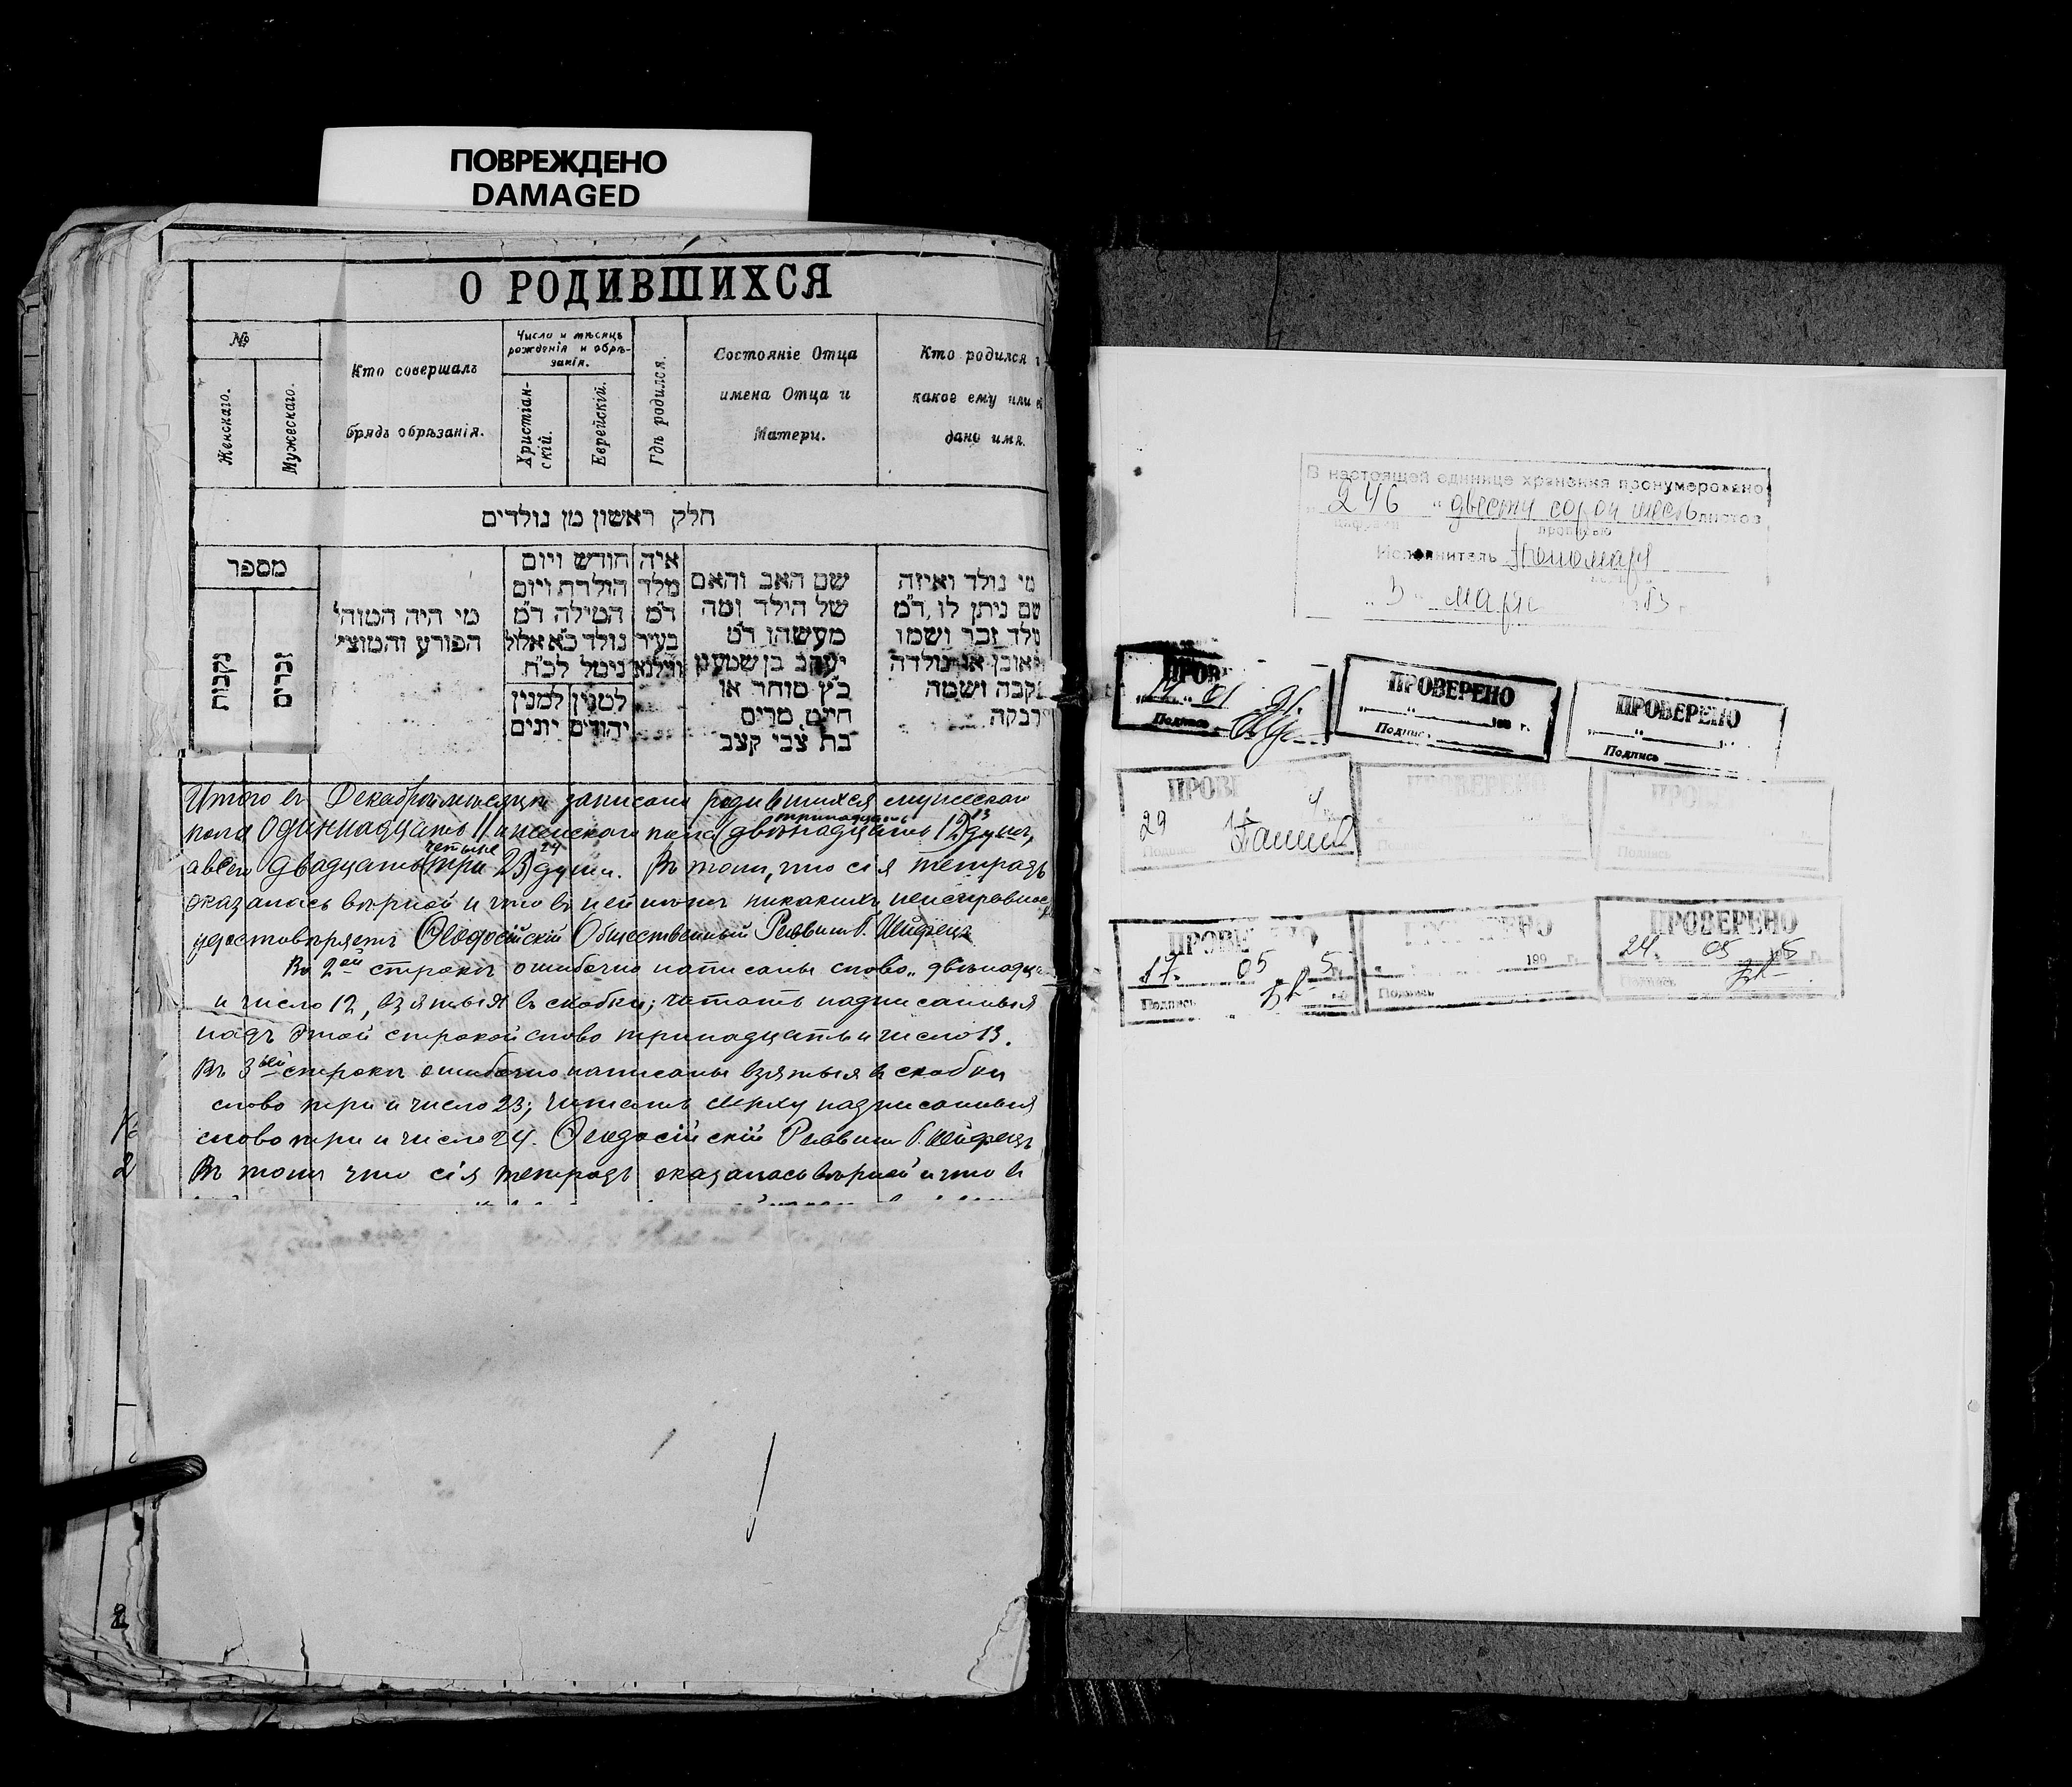 ПОВРЕЖДЕНО
DAMAGED
О РОДИВШИХСЯ
№
Женскаго.
Мужескаго.
Кто совершалъ
брядъ обрѣзанія.
Число и мѣсяцъ
рожденія и обрѣ-
занія.
Христіан-
скій.
Еврейскій.
Гдѣ родился.
Состояніе Отца
имена Отца и
Матери.
Кто родился и
какое ему или е
дано имя.
חלק ראשון מן נולדים
מספר
נקבות
זכרים
מי היה המוהל
הפורע והמוצץ
חודש ויום
הולדת ויום
המילה ד"מ
נולד כ"א אלול
נימל לכ"ח
למנין
יהודים
למנין
יונים
איה
מלד
ד"מ
בעיר
ווילנא
שם האב והאם
של הילד ומה
מעשהו ד"מ
יעקב בן שמעון
כ"ץ סוחר או
חייט, מרים
בת צבי קצב
מי נולד ואיזה
שם ניתן לו, ד"מ
נולד זכר ושמו
ראובן או נולדה
נקבה ושמה
רבקה.
Итого въ Декабрѣ мѣсяцѣ записано родившихся мужескаго
тринадцать 13
пола одиннадцать 11 и женскаго пола (двѣнадцать 12) душъ,
четыре 24
а всего двадцать (три 23) души. Въ томъ, что сія тетрадь
оказалась вѣрной и что въ ней нѣтъ никакихъ неисправнос
удостовѣряетъ Ѳеодосійскій Общественный Раввинъ Г. Шейфецъ
Въ 2ой строкѣ ошибочно написаны слово „двѣнадца
и число 12, взятыя въ скобки; читать надписанныя
надъ этой строкой слово тринадцать и число 13.
Въ 3ьей строкѣ ошибочно написаны взятыя въ скобки
слово три и число 23; читать сверху надписанныя
слово три и число 24. Ѳеодосійскій Раввинъ Г. Шейфецъ
Въ томъ что сія тетрадь оказалась вѣрной и что въ
2
2
В настоящей единице хранения пронумеровано
246 „двести сорок шесть листов
цифрами
прописью
Исполнитель Пономарь
„3" марта 83 г.
ПРОВЕ
01 91.
Подпись
ПРОВЕРЕНО
„ " 198 г.
Подпись
ПРОВЕРЕНО
„ "
Подпись
ПРОВЕ
29
Подпись
ПРОВЕРЕНО
Подпись
ПРОВ
Подпись
ПРОВЕ НО
17. 05 5
Подпись
ПРОВЕРЕНО
199 г.
Подпись
ПРОВЕРЕНО
24. 05
Подпись